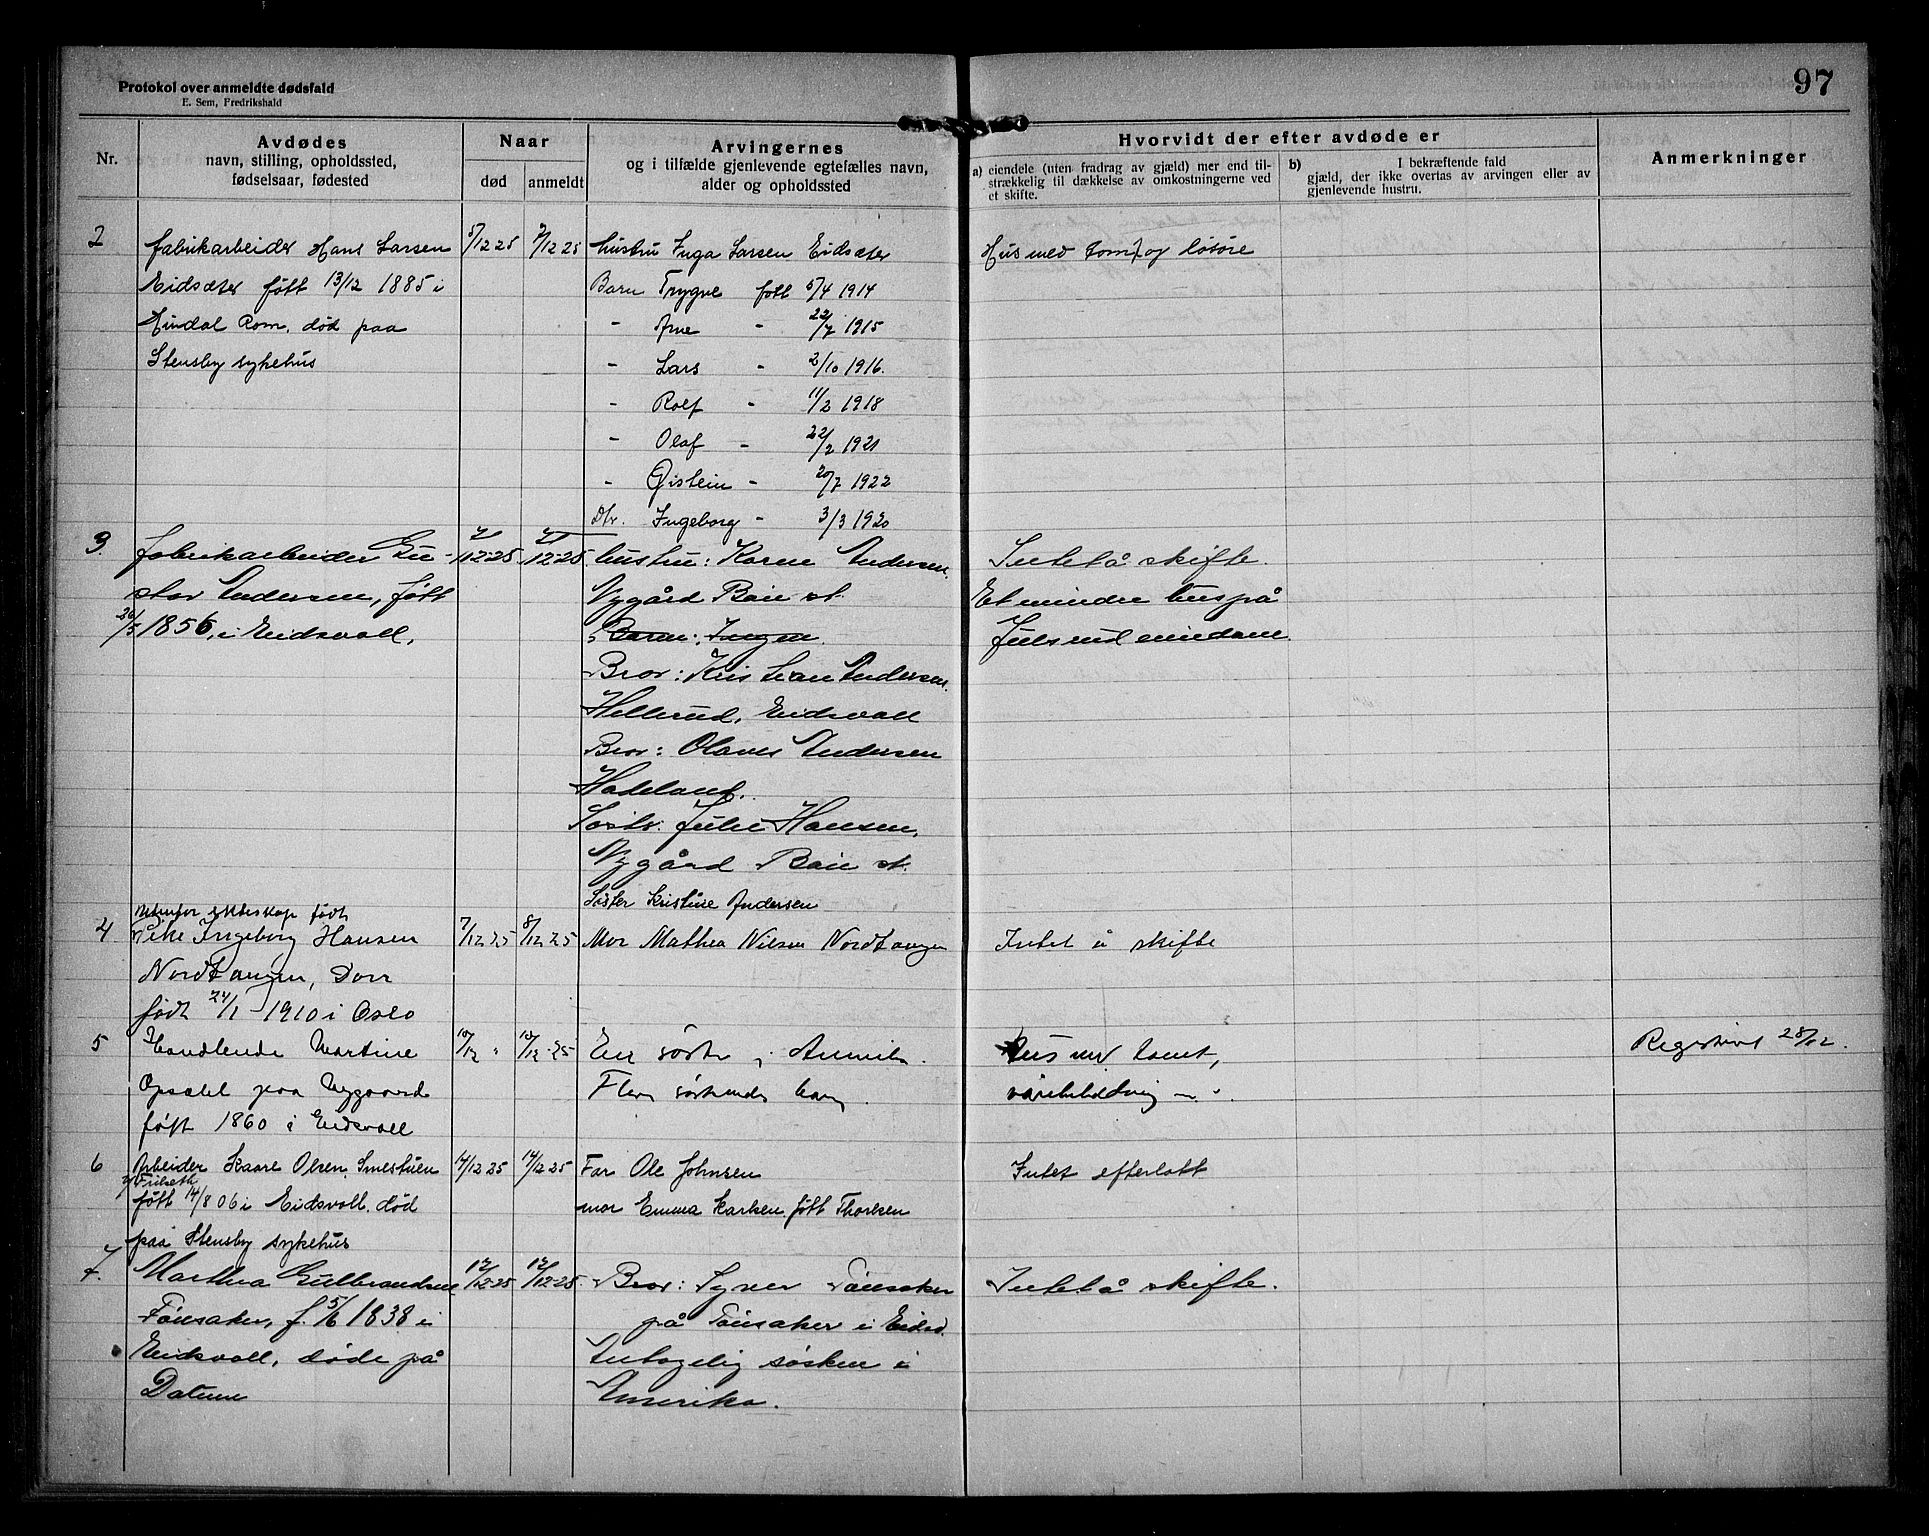 97
Protokol over anmeldte dødsfald
E. Sem, Fredrikshald
Nr.
Avdødes
navn, stilling, opholdssted,
fødselsaar, fødested
Naar
død
anmeldt
Arvingernes
og i tilfælde gjenlevende egtefælles navn,
alder og opholdssted
Hvorvidt der efter avdøde er
a) eiendele (uten fradrag av gjæld) mer end til-
strækkelig til dækkelse av omkostningerne ved
et skifte.
b) I bekræftende fald
gjæld, der ikke overtas av arvingen eller av
gjenlevende hustru.
Anmerkninger
2 fabrikarbeider Hans Larsen 5/12 25 7/12 25 hustru Inga Larsen Eidsæter Hus med tomt og løsøre
Eidsæter født 13/12 1885 i Barn Trygve født 5/4 1914
Rom. død paa " Arne - 22/7 1915
Stensby sykehus " Lars - 2/10 1916.
" Rolf - 11/2 1918
" Olaf - 22/2 1921
" Øistein - 20/7 1922
Dtr. Ingeborg - 3/3 1920
3. fabrikarbeider Gu- 7/12-25 7/12-25. hustru: Karen Andersen. Intet å skifte.
stav Andersen, født Nygård Bøn st. Et mindre hus på
20/5 1856, i Eidsvoll, Barn: Ingen. Julsrud eiendom.
Bror: Kristian Andersen.
Hellerud, Eidsvoll
Bror: Olaves Andersen
Hadeland.
Søster. Julie Hansen,
Nygård Bøn st.
Søster Kristine Andersen
utenfor ekteskap født
4 Pike Ingeborg Hansen 7/12 25 8/12 25 Mor Mathea Nilsen Nordtangen Intet å skifte
Nordtangen, Dorr
født 24/1 1910 i Oslo
5 Handlende Martine 10/12 " 10/12 -25 En søster i Hus med tomt, Registrert 28/12.
Opsatel paa Nygaard Flere barn.
født 1860 i Eidsvoll
6 Arbeider Kaare Olsen Smestuen 14/12 25 14/12 25 Far Ole Johnsen Intet efterlatt
født 14/8 06 i Eidsvoll. død mor Emma Karlsen født Thoresen
paa Stensby sykehus
7. Marthea Gulbrandsen 12/12-25 12/12-25 Bror: Syver Tønsaker Intet å skifte.
Tønsaker, f. 5/6 1838 i på Tønsaker i Eidsv.
Eidsvoll, døde på Antagelig søsken i
Amerika.